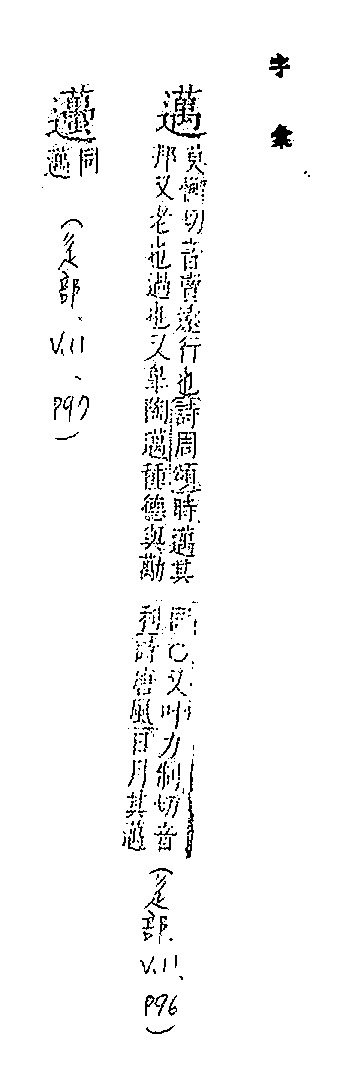 字彙
邁
莫懈切音賣遠行也詩周頌時邁其
邦又老也過也又皐陶邁種德與勱
同〇又叶力制切音
利詩唐風日月其邁
(辵部、V.11、P96)
䢫同
邁
(辵部、V.11、P97)